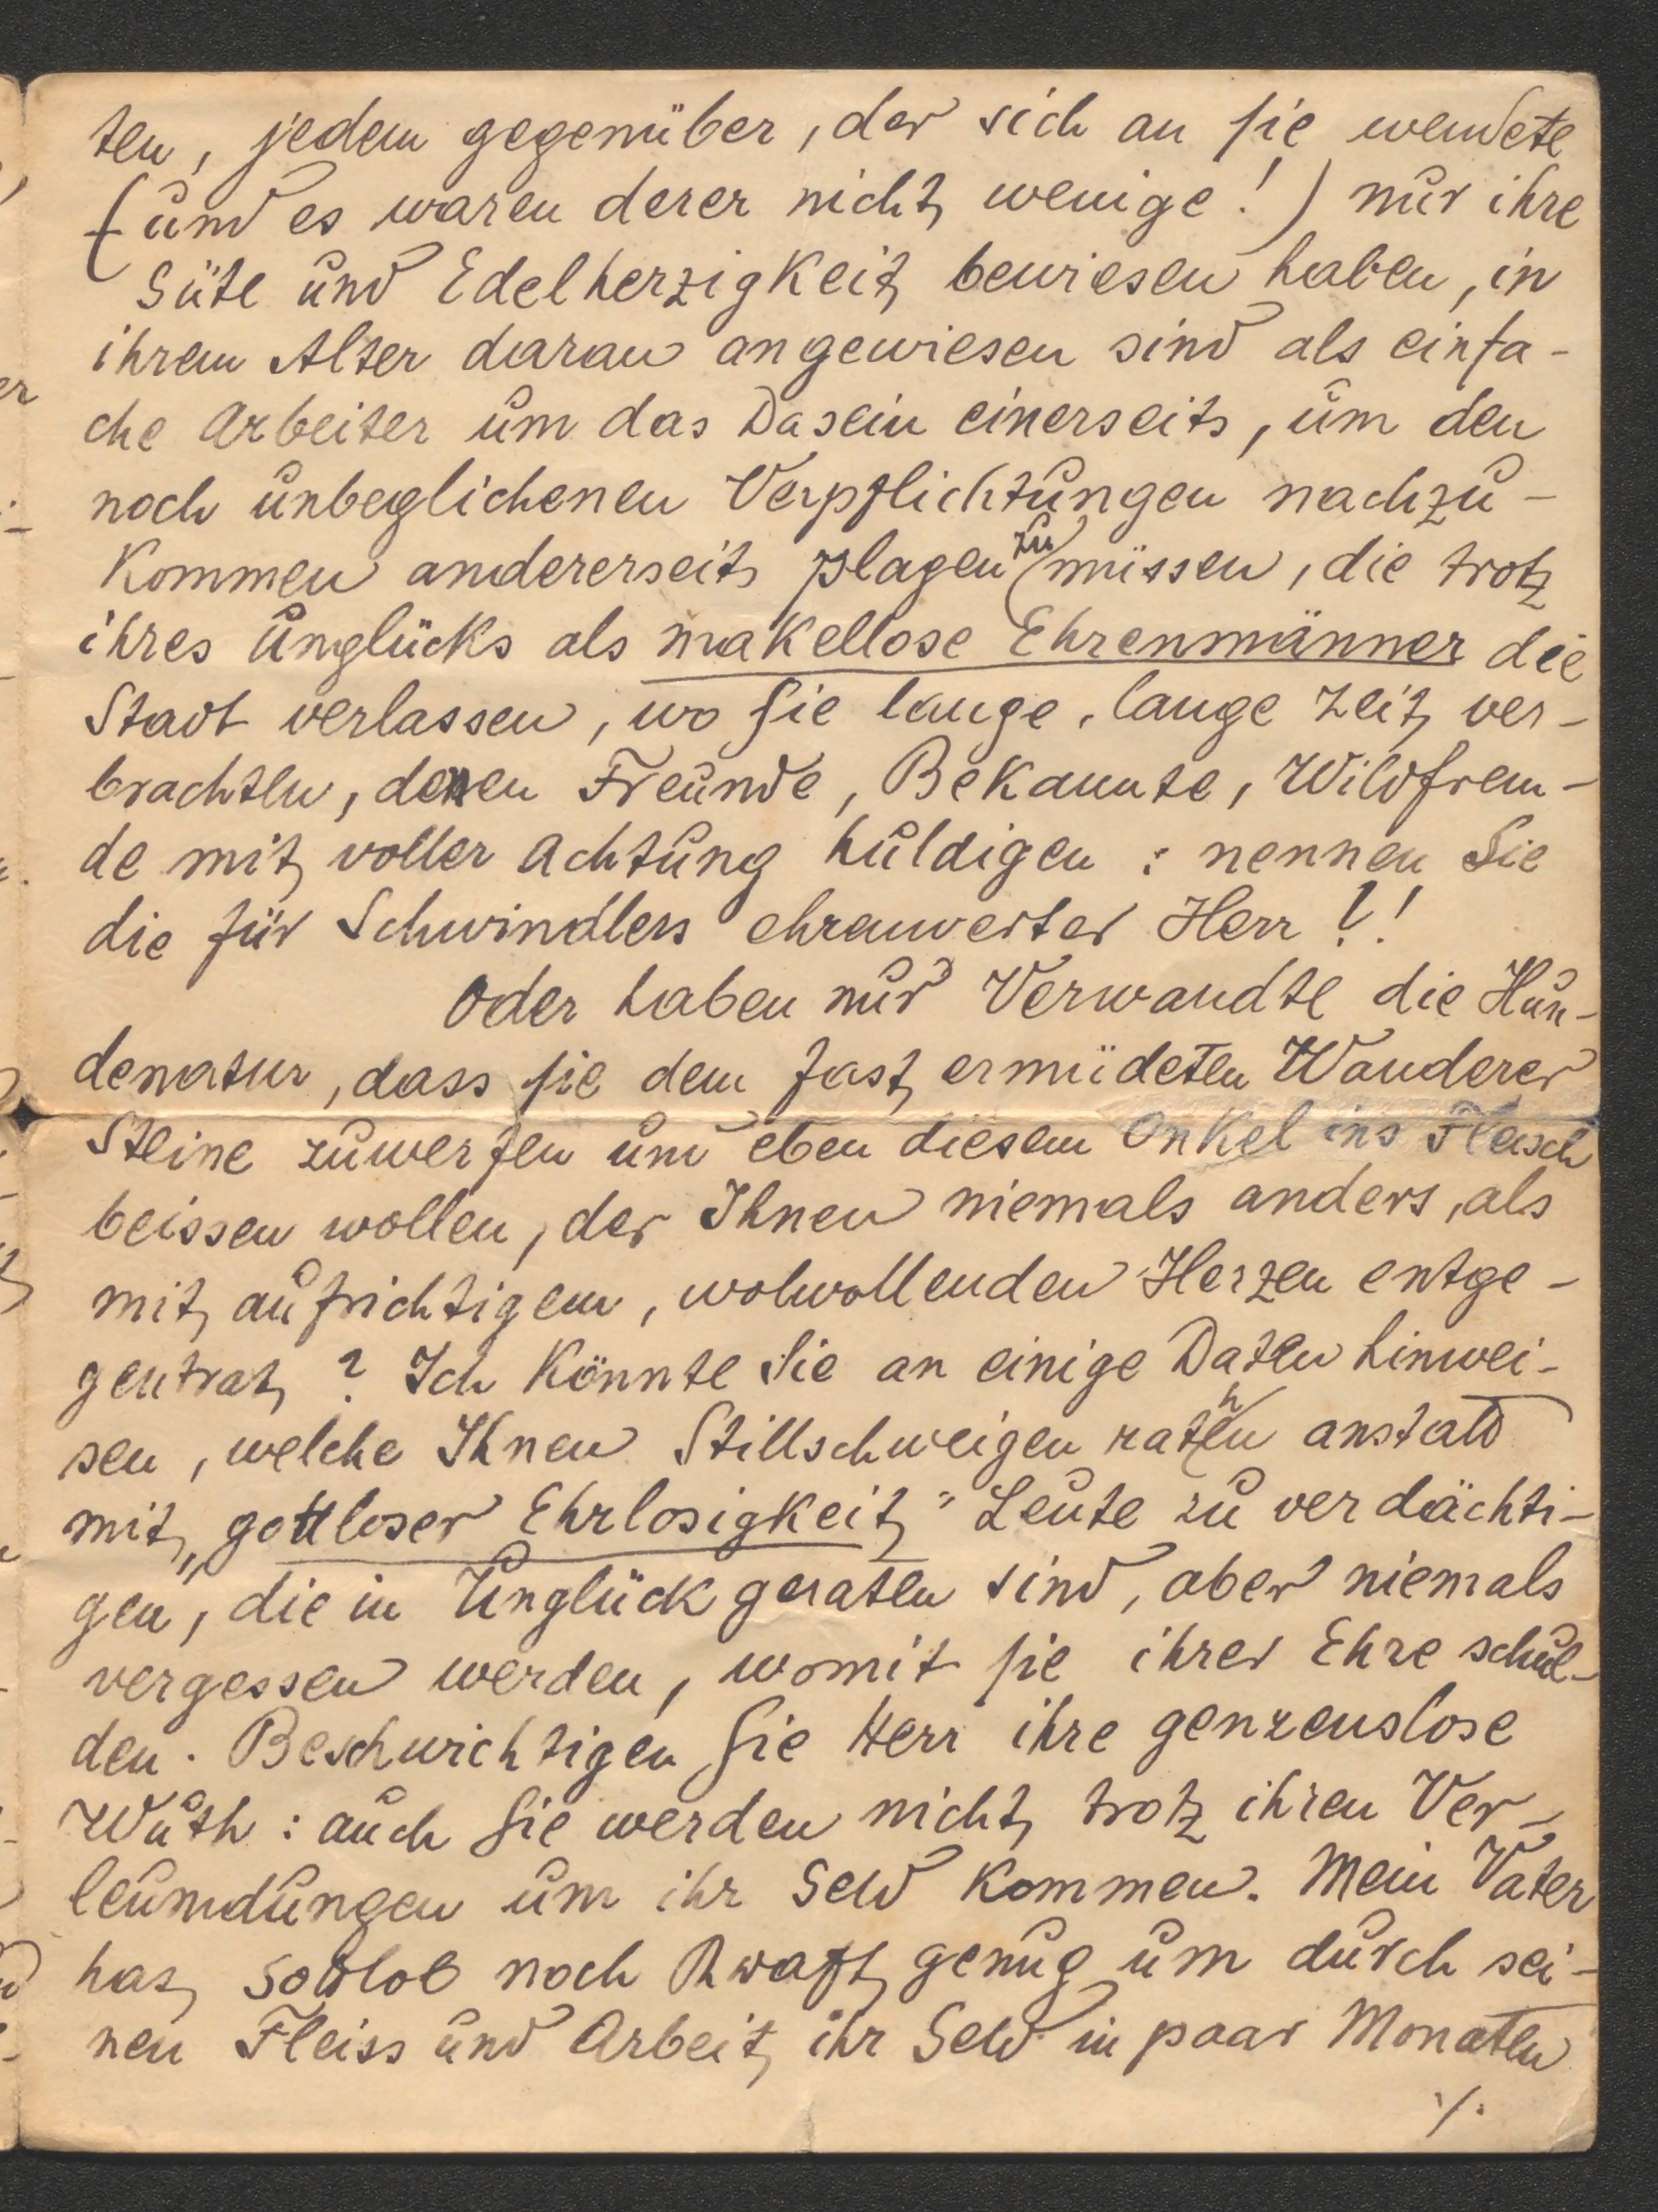 ten, jedem gegenüber, der sich an sie wendete
(und es waren derer nicht wenige!) nur ihre
Güte und Edelherzigkeit bewiesen haben, in
ihrem Alter daran angewiesen sind als einfa-
che Arbeiter um das Dasein einerseits, um den
noch unbeglichenen Verpflichtungen nachzu-
kommen andererseits plagen zu müssen, die trotz
ihres Unglücks als makellose Ehrenmänner die
Stadt verlassen, wo sie lange, lange Zeit ver-
brachten, denen Freunde, Bekannte, Wildfrem-
de mit voller Achtung huldigen: nennen Sie
die für Schwindlers ehrenwerter Herr?!
Oder haben nur Verwandte die Hun-
denatur, dass sie dem fast ermüdeten Wanderer
Steine zuwerfen und eben diesem Onkel ins Fleisch
beissen wollen, der Ihnen niemals anders, als
mit aufrichtigem, wolwollenden Herzen entge-
gentrat? Ich könnte Sie an einige Daten hinwei-
sen, welche Ihnen Stillschweigen rathen anstatt
mit „gottloser Ehrlosigkeit" Leute zu verdächti-
gen, die in Unglück geraten sind, aber niemals
vergessen werden, womit sie ihrer Ehre schul-
den. Beschwichtigen Sie Herr ihre genzenslose
Wuth: auch Sie werden nicht trotz ihren Ver-
leumdungen um ihr Geld kommen. Mein Vater
hat Gottlob noch Kraft genug um durch sei-
nen Fleiss und Arbeit ihr Geld in paar Monaten
./.